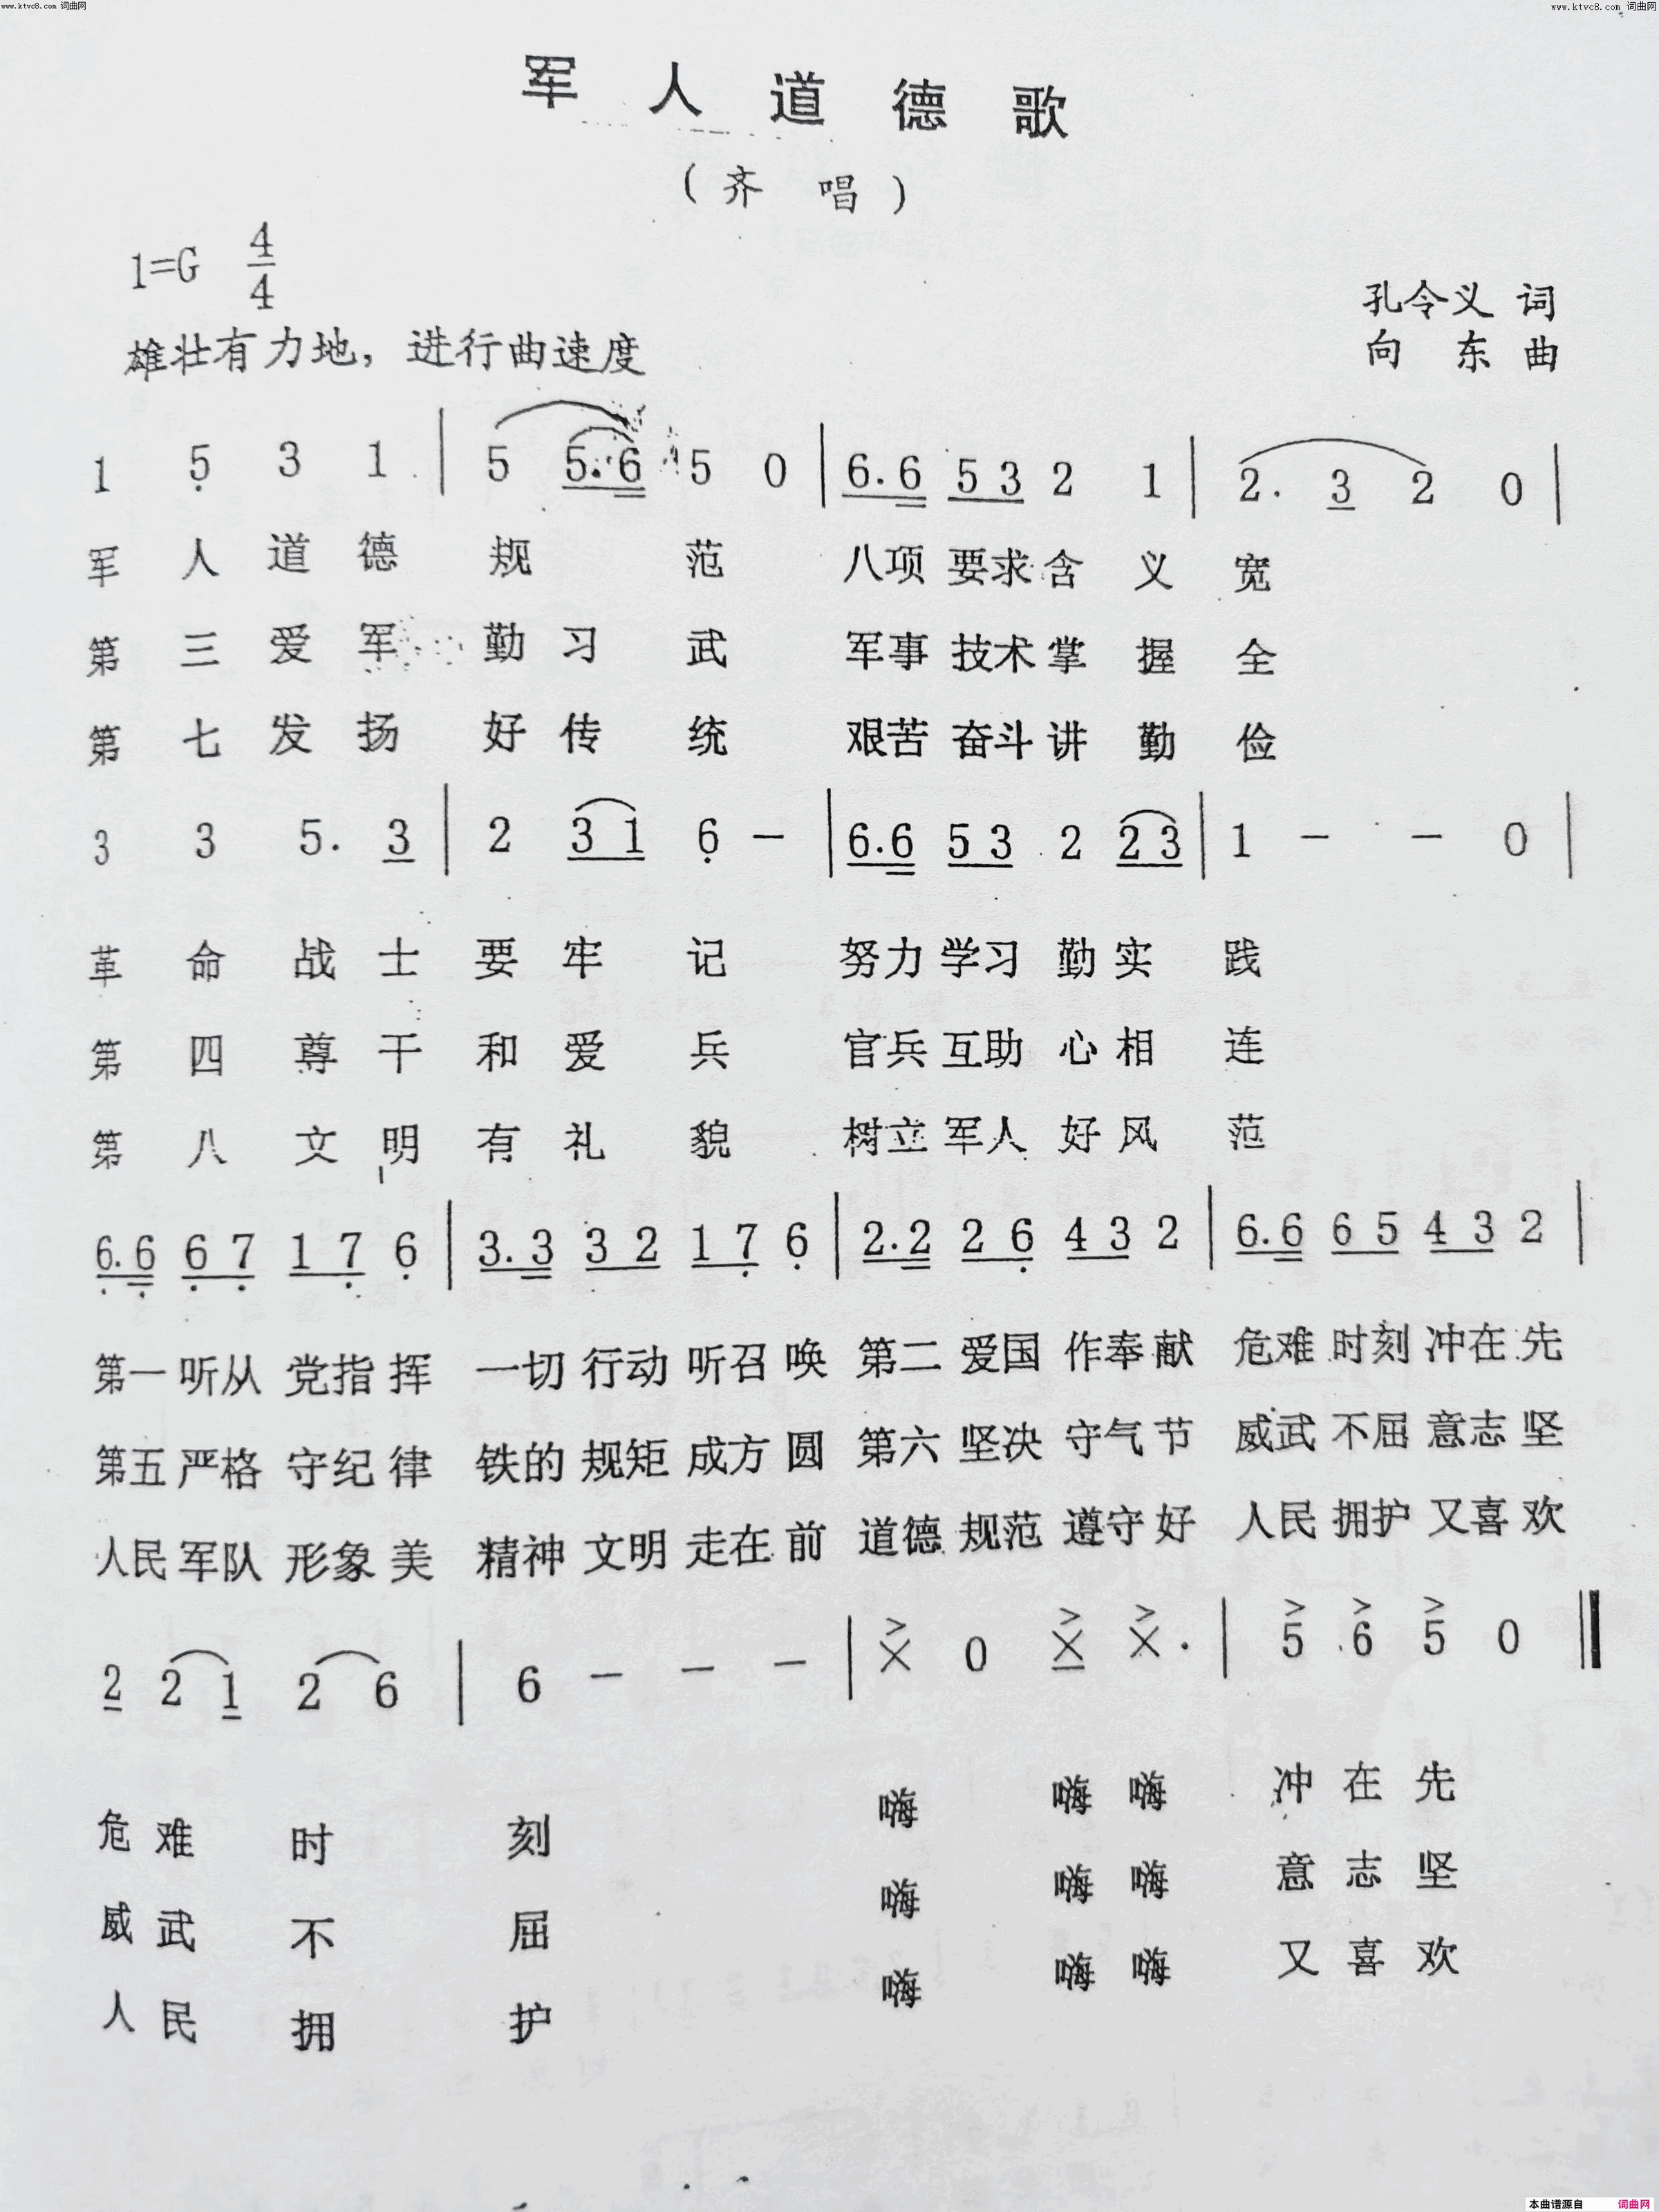 www.ktvc8.com 词曲网
www.ktvc8.com 词曲网
军人道德歌
(齐唱)
1=G 4/4
孔令义 词
雄壮有力地，进行曲速度
向东 曲
1 5̣ 3 1 | 5 5. 6 5 0 | 6. 6 5 3 2 1 | 2. 3 2 0 |
军人道德 规范 八项要求含义宽
第三爱军 勤习武 军事技术掌握全
第七发扬 好传统 艰苦奋斗讲勤俭
3 3 5. 3 | 2 3 1 6̣ － | 6. 6 5 3 2 2 3 | 1 － － 0 |
革命战士 要牢记 努力学习勤实践
第四尊干 和爱兵 官兵互助心相连
第八文明 有礼貌 树立军人好风范
6̣. 6̣ 6̣ 7̣ 1 7̣ 6̣ | 3. 3 3 2 1 7̣ 6̣ | 2. 2 2 6̣ 4 3 2 | 6. 6 6 5 4 3 2 |
第一听从党指挥 一切行动听召唤 第二爱国作奉献 危难时刻冲在先
第五严格守纪律 铁的规矩成方圆 第六坚决守气节 威武不屈意志坚
人民军队形象美 精神文明走在前 道德规范遵守好 人民拥护又喜欢
2 2 1 2 6 | 6 － － － | X 0 X X. | 5 6 5 0 ‖
危难时 刻 嗨 嗨嗨 冲在先
威武不 屈 嗨 嗨嗨 意志坚
人民拥 护 嗨 嗨嗨 又喜欢
本曲谱源自 词曲网